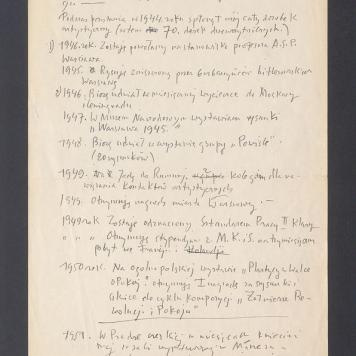 Podczas powstania w 1944 roku spłonął mój cały dorobek
artystyczny (70
1) 1946 rok. Zostaję powołany na stanowisko profesora A.S.P.
Warszawa.
1945. Rysuję zniszczoną przez barbarzyńców hitlerowskich
Warszawę
2) 1946. Biorę udział w miesięcznej wycieczce do Moskwy
Leningradu
1947. W Muzeum Narodowym wystawiam rysunki
"Warszawa 1945."
1948. Biorę udział w wystawie grupy "Powiśle".
(20 rysunków)
1949. Jadę do Rumunii, kolegom dla na-
wiązania kontaktów artystycznych
1949. Otrzymuję nagrodę miasta Warszawy. —
1949 rok Zostaję odznaczony Sztandarem Pracy II Klasy
" " " Otrzymuję stypendium z M.K.i S.
pobyt we Francji i Holandja
1950 rok. Na ogólnopolskiej wystawie "Plastycy w walce
o Pokój" otrzymuję I nagrodę za rysunki
szkice do cyklu kompozycji "Żołnierze Re-
wolucji i Pokoju"
1951. W Pradze czeskiej w miesiącu kwietniu